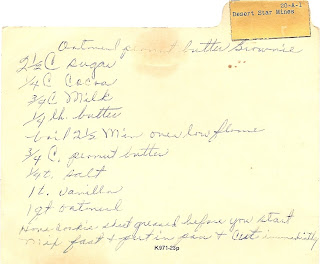 20-A-1
Desert Star Mines
Oatmeal peanut butter Brownie
2½ C sugar
¼ C Cocoa
¾ C Milk
¼ lb. butter
boil 2½ Min over low flame
¾ C. peanut butter
¼ t. salt
1 t. vanilla
1 qt oatmeal
Have cookie sheet greased before you start
Mix fast & put in pan & Cut immediately
K971-23p